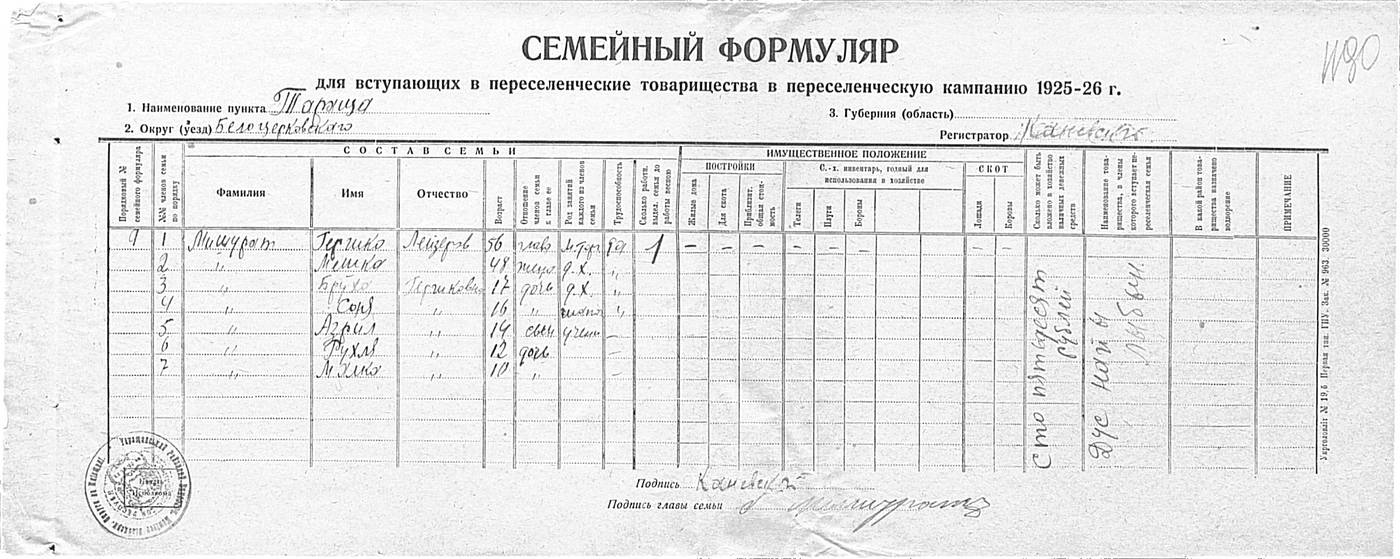 1190
СЕМЕЙНЫЙ ФОРМУЛЯР
для вступающих в переселенческие товарищества в переселенческую кампанию 1925-26 г.
1. Наименование пункта Тараща
3. Губерния (область)
2. Округ (уезд) Белоцерковского
Регистратор Каневский
СОСТАВ СЕМЬИ
ИМУЩЕСТВЕННОЕ ПОЛОЖЕНИЕ
Порядковый № семейного формуляра
№№ членов семьи по порядку
Фамилия
Имя
Отчество
Возраст
Отношение членов семьи к главе ее
Род занятий каждого из членов семьи
Трудоспособность
Сколько работн. выдел. семья до работы весною
ПОСТРОЙКИ
Жилые дома
Для скота
Приблизит. общая стоимость
С.-х. инвентарь, годный для использования в хозяйстве
Телеги
Плуги
Бороны
СКОТ
Лошади
Коровы
Сколько может быть вложено в хозяйство наличных денежных средств
Наименование товарищества, в члены которого вступает переселенческая семья
В какой район товарищества назначено водворение
ПРИМЕЧАНИЕ
9 1 Мишурат Гершко Лейзеров 56 глава м.торг да 1 — — — — — — — —
2 " 48 жена д.х. "
3 " Бруха Гершковна 17 дочь д.х. "
4 " Соня " 16 " "
5 " " 14 сын учени —
6 " Рухля " 12 дочь —
7 " " 10 " —
Сто пятьдесят рублей
Дус найы
Подпись Каневский
Подпись главы семьи
Печать
Исполкома
Укрголовліт № 19, б Первая тип. ГПУ. Зак. № 963. 30000